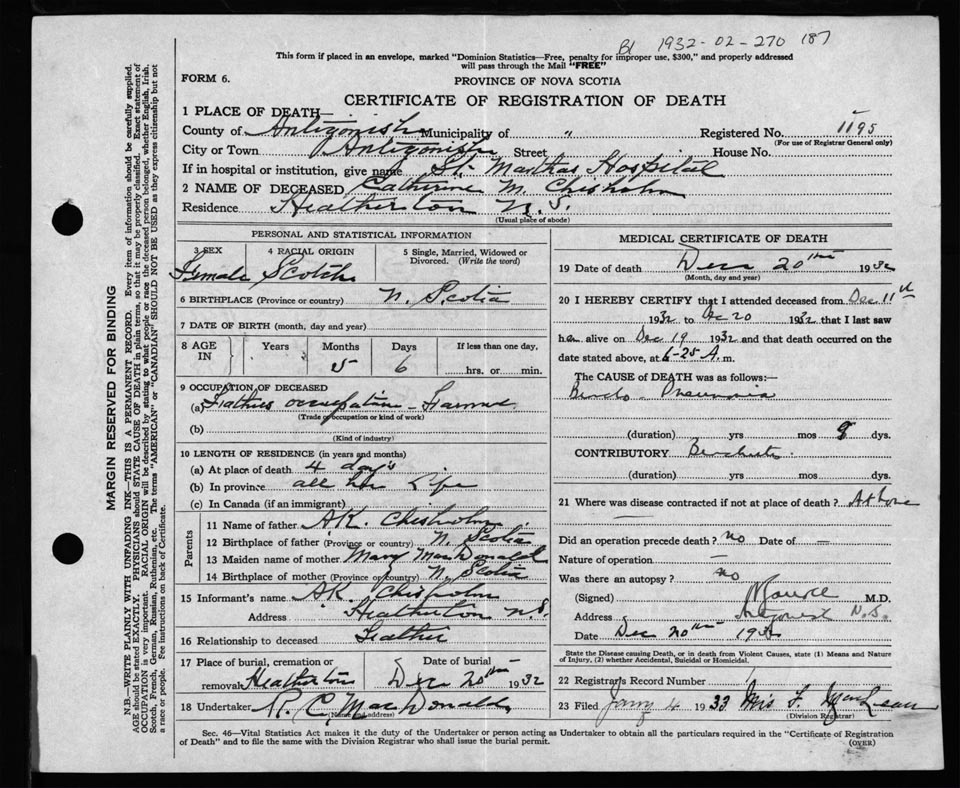 1932-02-270 187
This form if placed in an envelope, marked "Dominion Statistics—Free, penalty for improper use, $300," and properly addressed
will pass through the Mail "FREE"
FORM 6.
PROVINCE OF NOVA SCOTIA
CERTIFICATE OF REGISTRATION OF DEATH
1 PLACE OF DEATH—
County of Antigonish Municipality of " Registered No. 1195
(For use of Registrar General only)
City or Town Antigonish Street House No.
If in hospital or institution, give name St. Marthas Hospital
2 NAME OF DECEASED Catherine M. Chisholm
Residence Heatherton N.S.
(Usual place of abode)
PERSONAL AND STATISTICAL INFORMATION
3 SEX 4 RACIAL ORIGIN 5 Single, Married, Widowed or
Divorced. (Write the word)
Female Scotch
6 BIRTHPLACE (Province or country) N. Scotia
7 DATE OF BIRTH (month, day and year)
8 AGE IN Years Months Days If less than one day,
5 6 hrs. or min.
9 OCCUPATION OF DECEASED
(a) Fathers occupation - Farmer
(Trade or occupation or kind of work)
(b)
(Kind of industry)
10 LENGTH OF RESIDENCE (in years and months)
(a) At place of death 4 days
(b) In province all her Life
(c) In Canada (if an immigrant)
Parents
11 Name of father A.K. Chisholm
12 Birthplace of father (Province or country) N. Scotia
13 Maiden name of mother Mary MacDonald
14 Birthplace of mother (Province or country) N. Scotia
15 Informant's name A.K. Chisholm
Address Heatherton N.S.
16 Relationship to deceased Father
17 Place of burial, cremation or Date of burial
removal Heatherton Dec 20th 1932
18 Undertaker R. C. MacDonald
(Name and address)
MEDICAL CERTIFICATE OF DEATH
19 Date of death Dec 20th 1932
(Month, day and year)
20 I HEREBY CERTIFY that I attended deceased from Dec 11th
1932 to Dec 20 1932 that I last saw
her alive on Dec 19 1932 and that death occurred on the
date stated above, at 6-25 A. m.
The CAUSE OF DEATH was as follows:—
Broncho-Pneumonia
(duration) yrs mos 9 dys.
CONTRIBUTORY Bronchitis
(duration) yrs mos dys.
21 Where was disease contracted if not at place of death? At home
Did an operation precede death? no Date of —
Nature of operation —
Was there an autopsy? no
(Signed) M.D.
Address N.S.
Date Dec 20th 1932
State the Disease causing Death, or in death from Violent Causes, state (1) Means and Nature
of Injury, (2) whether Accidental, Suicidal or Homicidal.
22 Registrar's Record Number
23 Filed Jany 4 1933 Mrs F. MacLean
(Division Registrar)
Sec. 46—Vital Statistics Act makes it the duty of the Undertaker or person acting as Undertaker to obtain all the particulars required in the "Certificate of Registration
of Death" and to file the same with the Division Registrar who shall issue the burial permit.
(OVER)
MARGIN RESERVED FOR BINDING
N.B.—WRITE PLAINLY WITH UNFADING INK—THIS IS A PERMANENT RECORD. Every item of information should be carefully supplied.
AGE should be stated EXACTLY. PHYSICIANS should STATE CAUSE OF DEATH in plain terms, so that it may be properly classified. Exact statement of
OCCUPATION is very important. RACIAL ORIGIN will be described by stating to what people or race the deceased person belonged, whether English, Irish,
Scotch, French, German, Russian, Ruthenian, etc. The terms "AMERICAN" or "CANADIAN" SHOULD NOT BE USED as they express citizenship but not
a race or people. See instructions on back of Certificate.